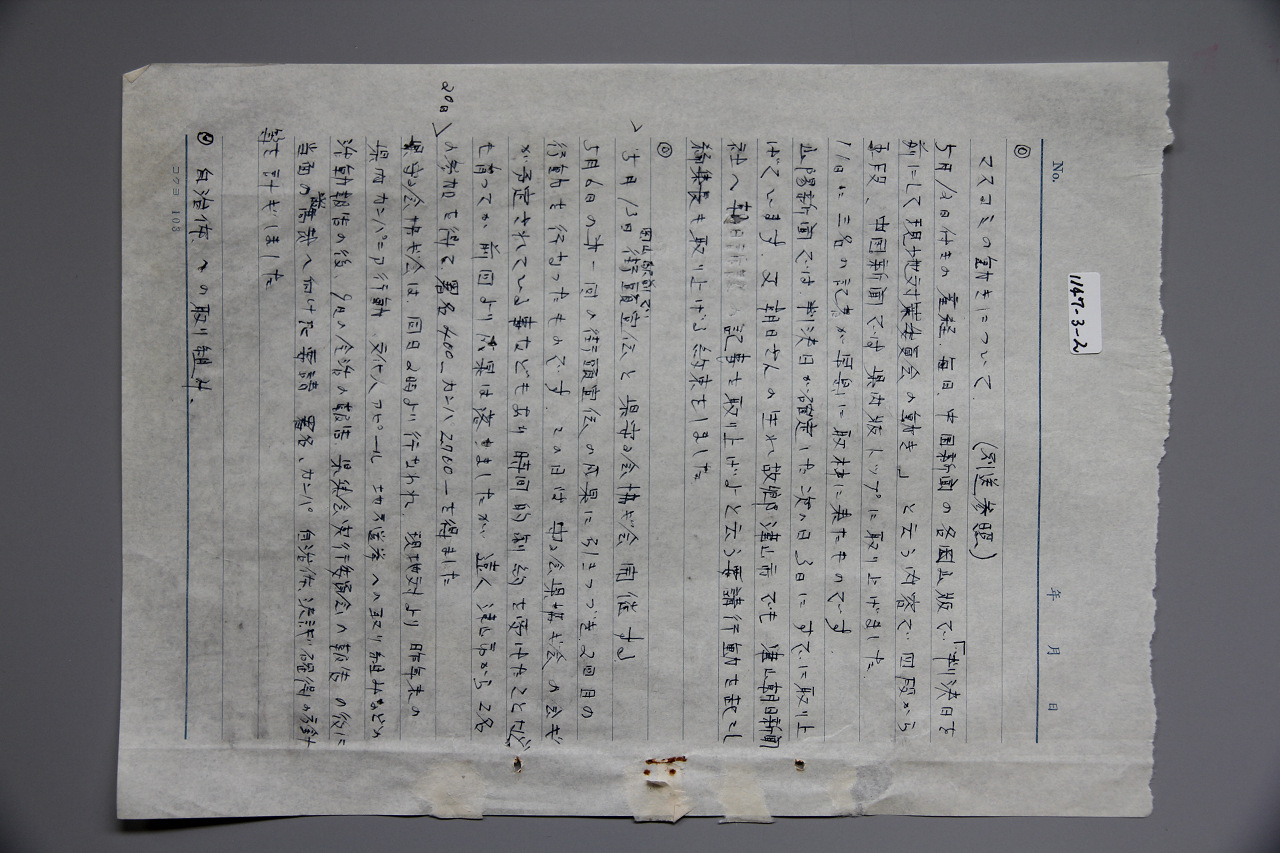 1147-3-2
No.
年 月 日
◎ マスコミの動きについて. (別送参照)
5月12日付きの産経、毎日、中国新聞の各岡山版で「判決日を
前にして現地対策委員会の動き」と云う内容で四段から
五段、中国新聞では県内版トップに取り上げました.
11日に三名の記者が早島に取材に来たものです.
山陽新聞では、判決日が確定した次の日3日にすでに取り上
げています. 又 朝日さんの生れ故郷津山市でも 津山朝日新聞
社へ 記事を取り上げよと云う要請行動を起こし
編集長も取り上げる約束をしました
◎ 5月13日 街頭宣伝と県守る会拡大会開催する
岡山駅前で
5月6日の第一回の街頭宣伝の成果に引きつづき、2回目の
行動を行なったものです. この日は 守る会県拡大会の会ギ
が予定されている事などもあり 時間的制約を受けたことなど
も有ってか 前回より成果は落ちましたが 遠く津山市から2名
の参加を得て、署名400- カンパ2700-を得ました
20日
県守る会拡大会は、同日2時より行なわれ、現地対より昨年末の
県内カンパニア行動、文化人アピール 地方選挙への取り組みなどの
活動報告の後 会の報告 県集会実行委員会の報告の後に
当面の 裁へ向けた要請 署名、カンパ 自治体決議獲得の方針
等を討ギしました
◎ 自治体への取り組み.
コクヨ 108